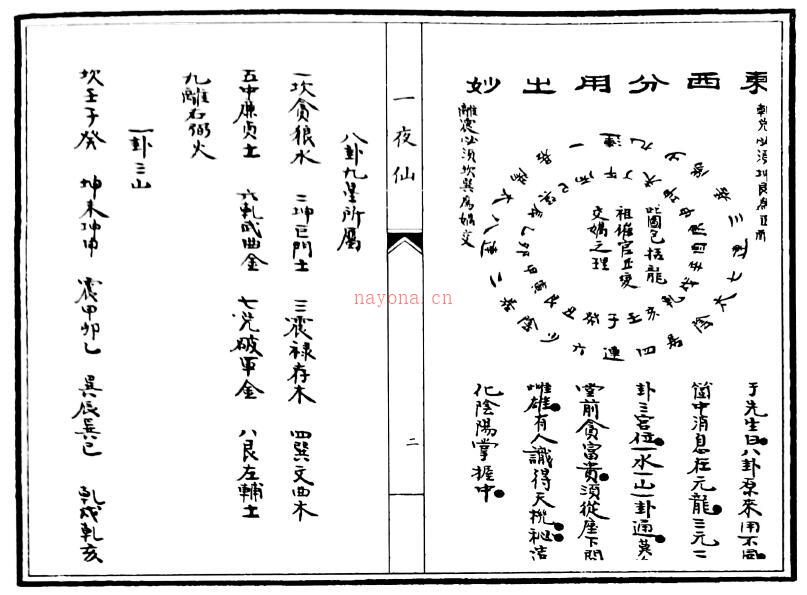 東西分用之妙
乾兌必須坤艮為正
離震必須坎巽為媾交
此圖包括龍
祖催官正變
交媾之理
壬子癸丑艮寅甲卯乙辰巽巳丙午丁未坤申庚酉辛戌乾亥
于先生曰八卦原來用不同
箇中消息在元龍三元二
卦三宮位一水一山一卦通墓
堂前貪富貴須從座下問
雌雄有人識得天機秘活
化陰陽掌握中
一夜仙
二
八卦九星所屬
一坎貪狼水 二坤巨門土 三震祿存木 四巽文曲木
五中廉貞土 六乾武曲金 七兌破軍金 八艮左輔土
九離右弼火
一卦三山
坎壬子癸 坤未坤申 震甲卯乙 巽辰巽巳 乾戌乾亥
nayona.cn